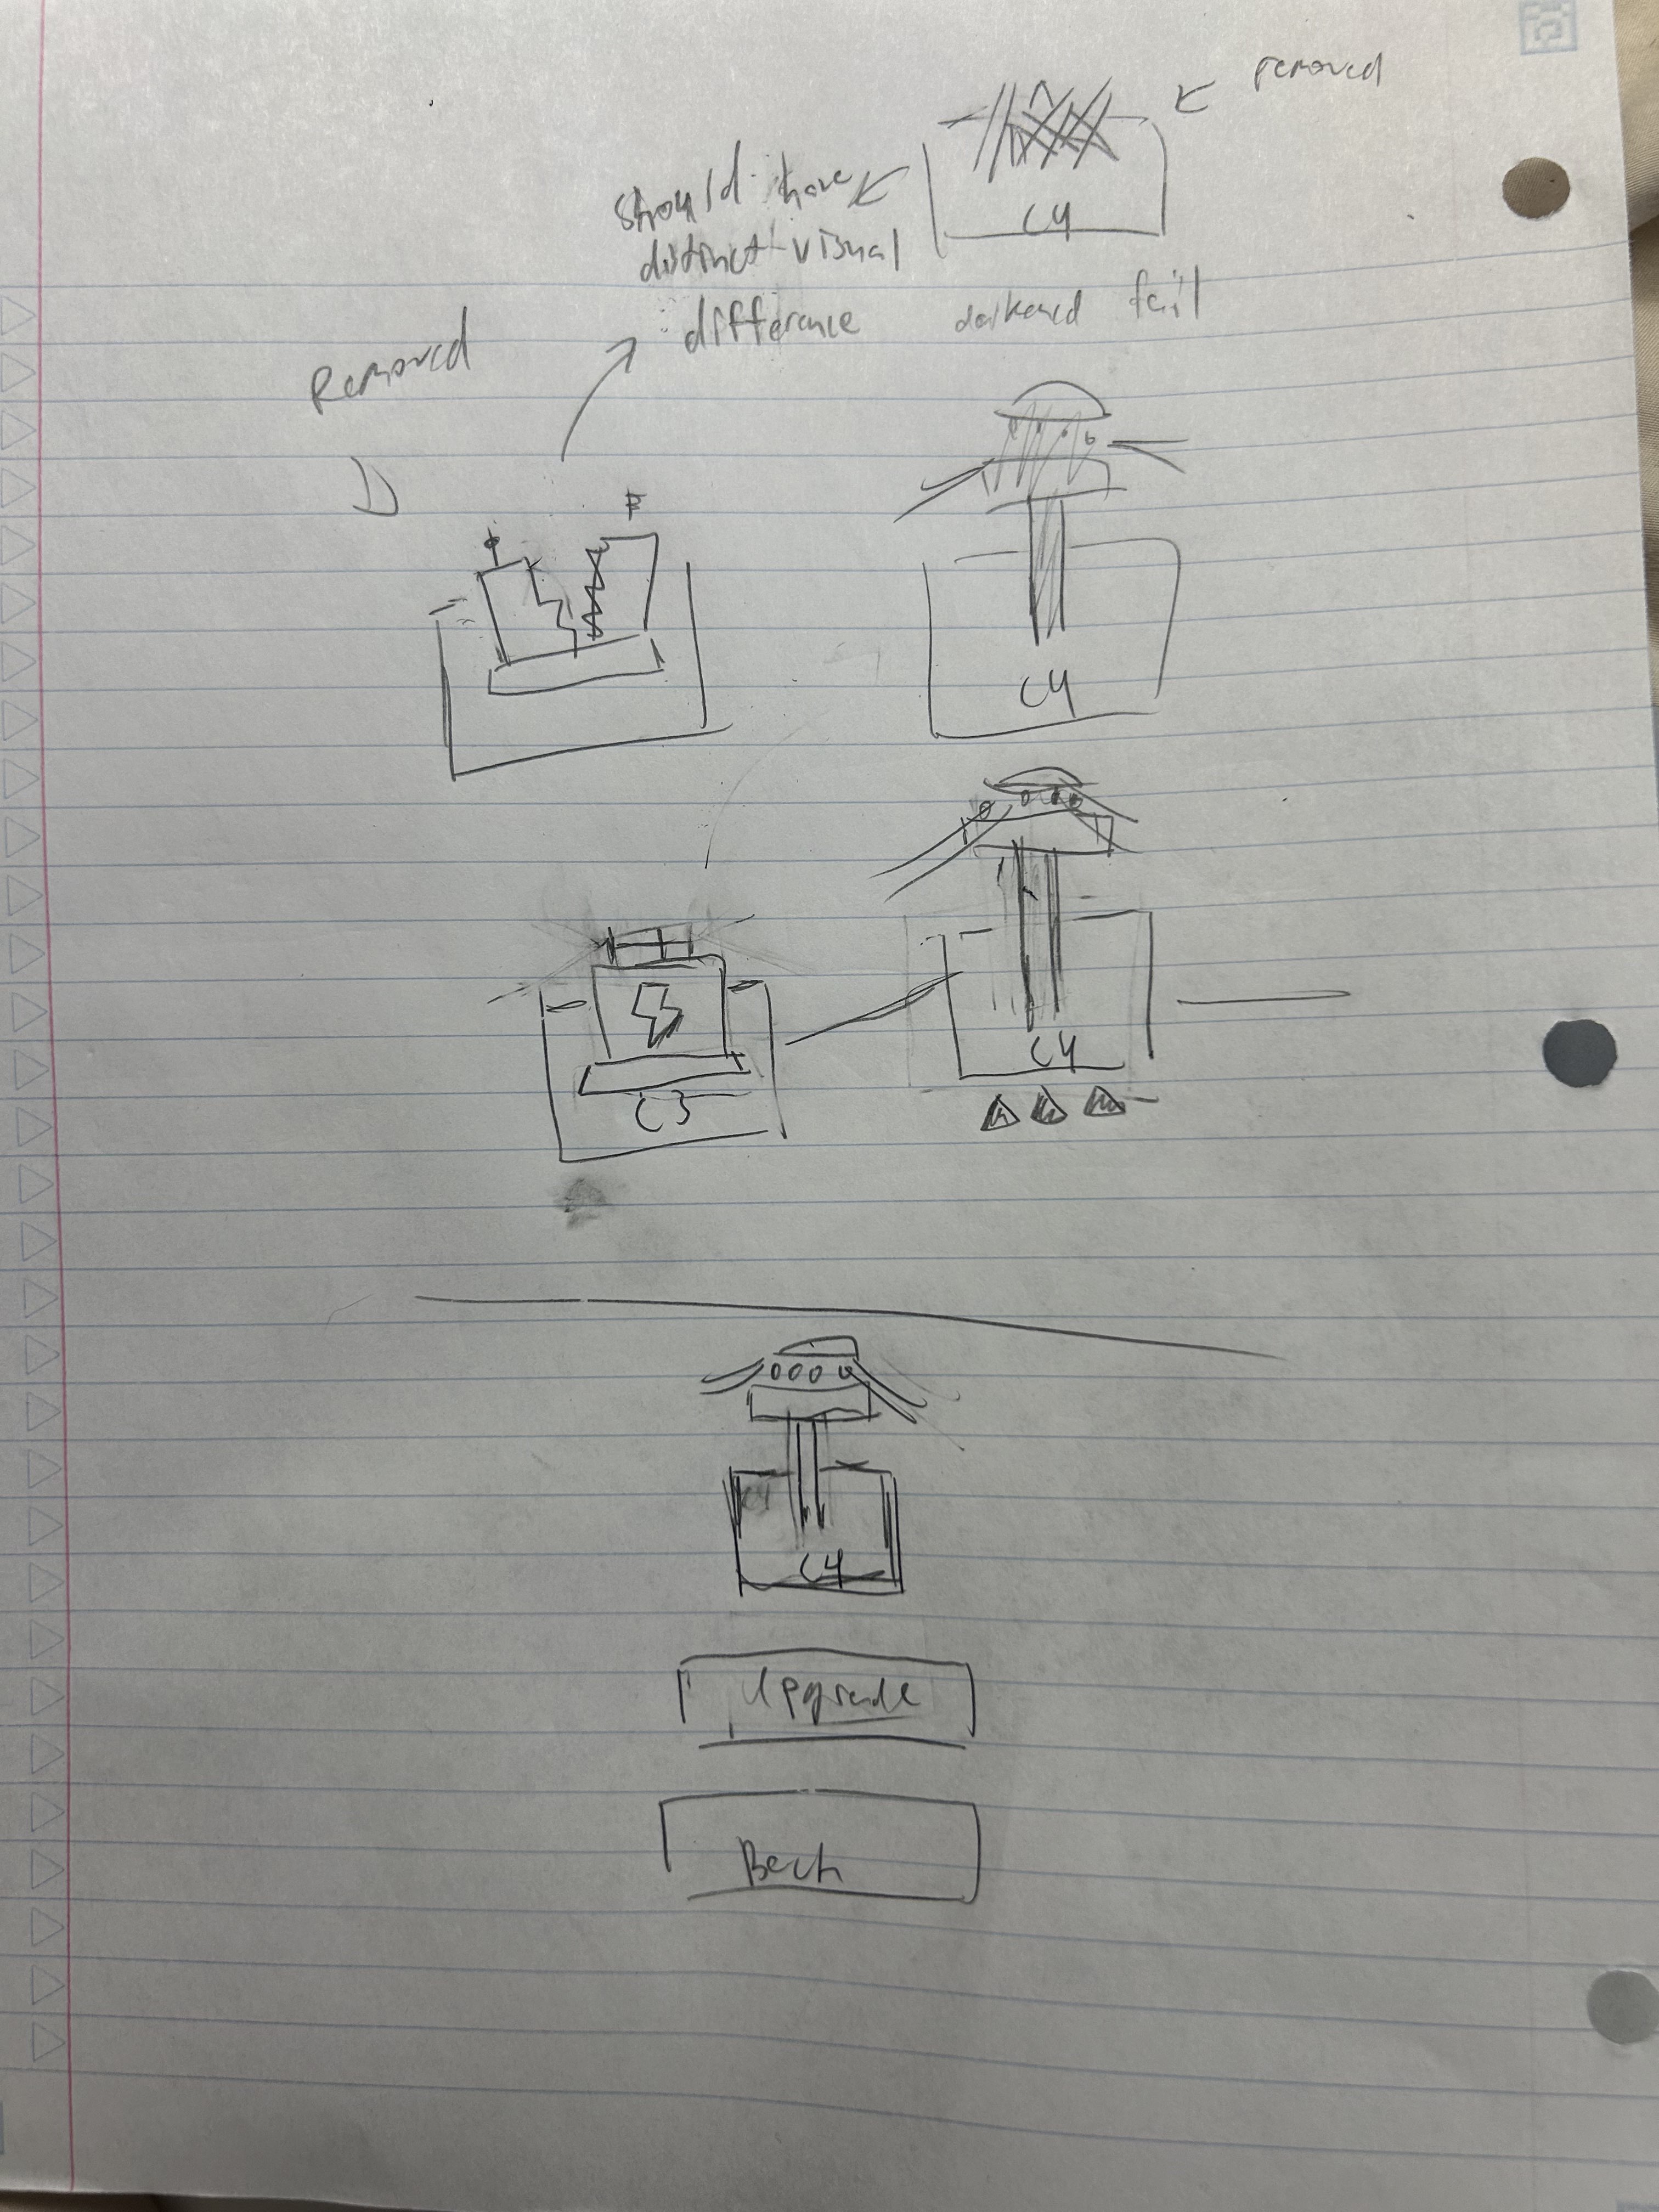 removed
should have
distinct visual
difference
C4
darkened fail
Removed
C4
C4
C3
C4
Upgrade
Back